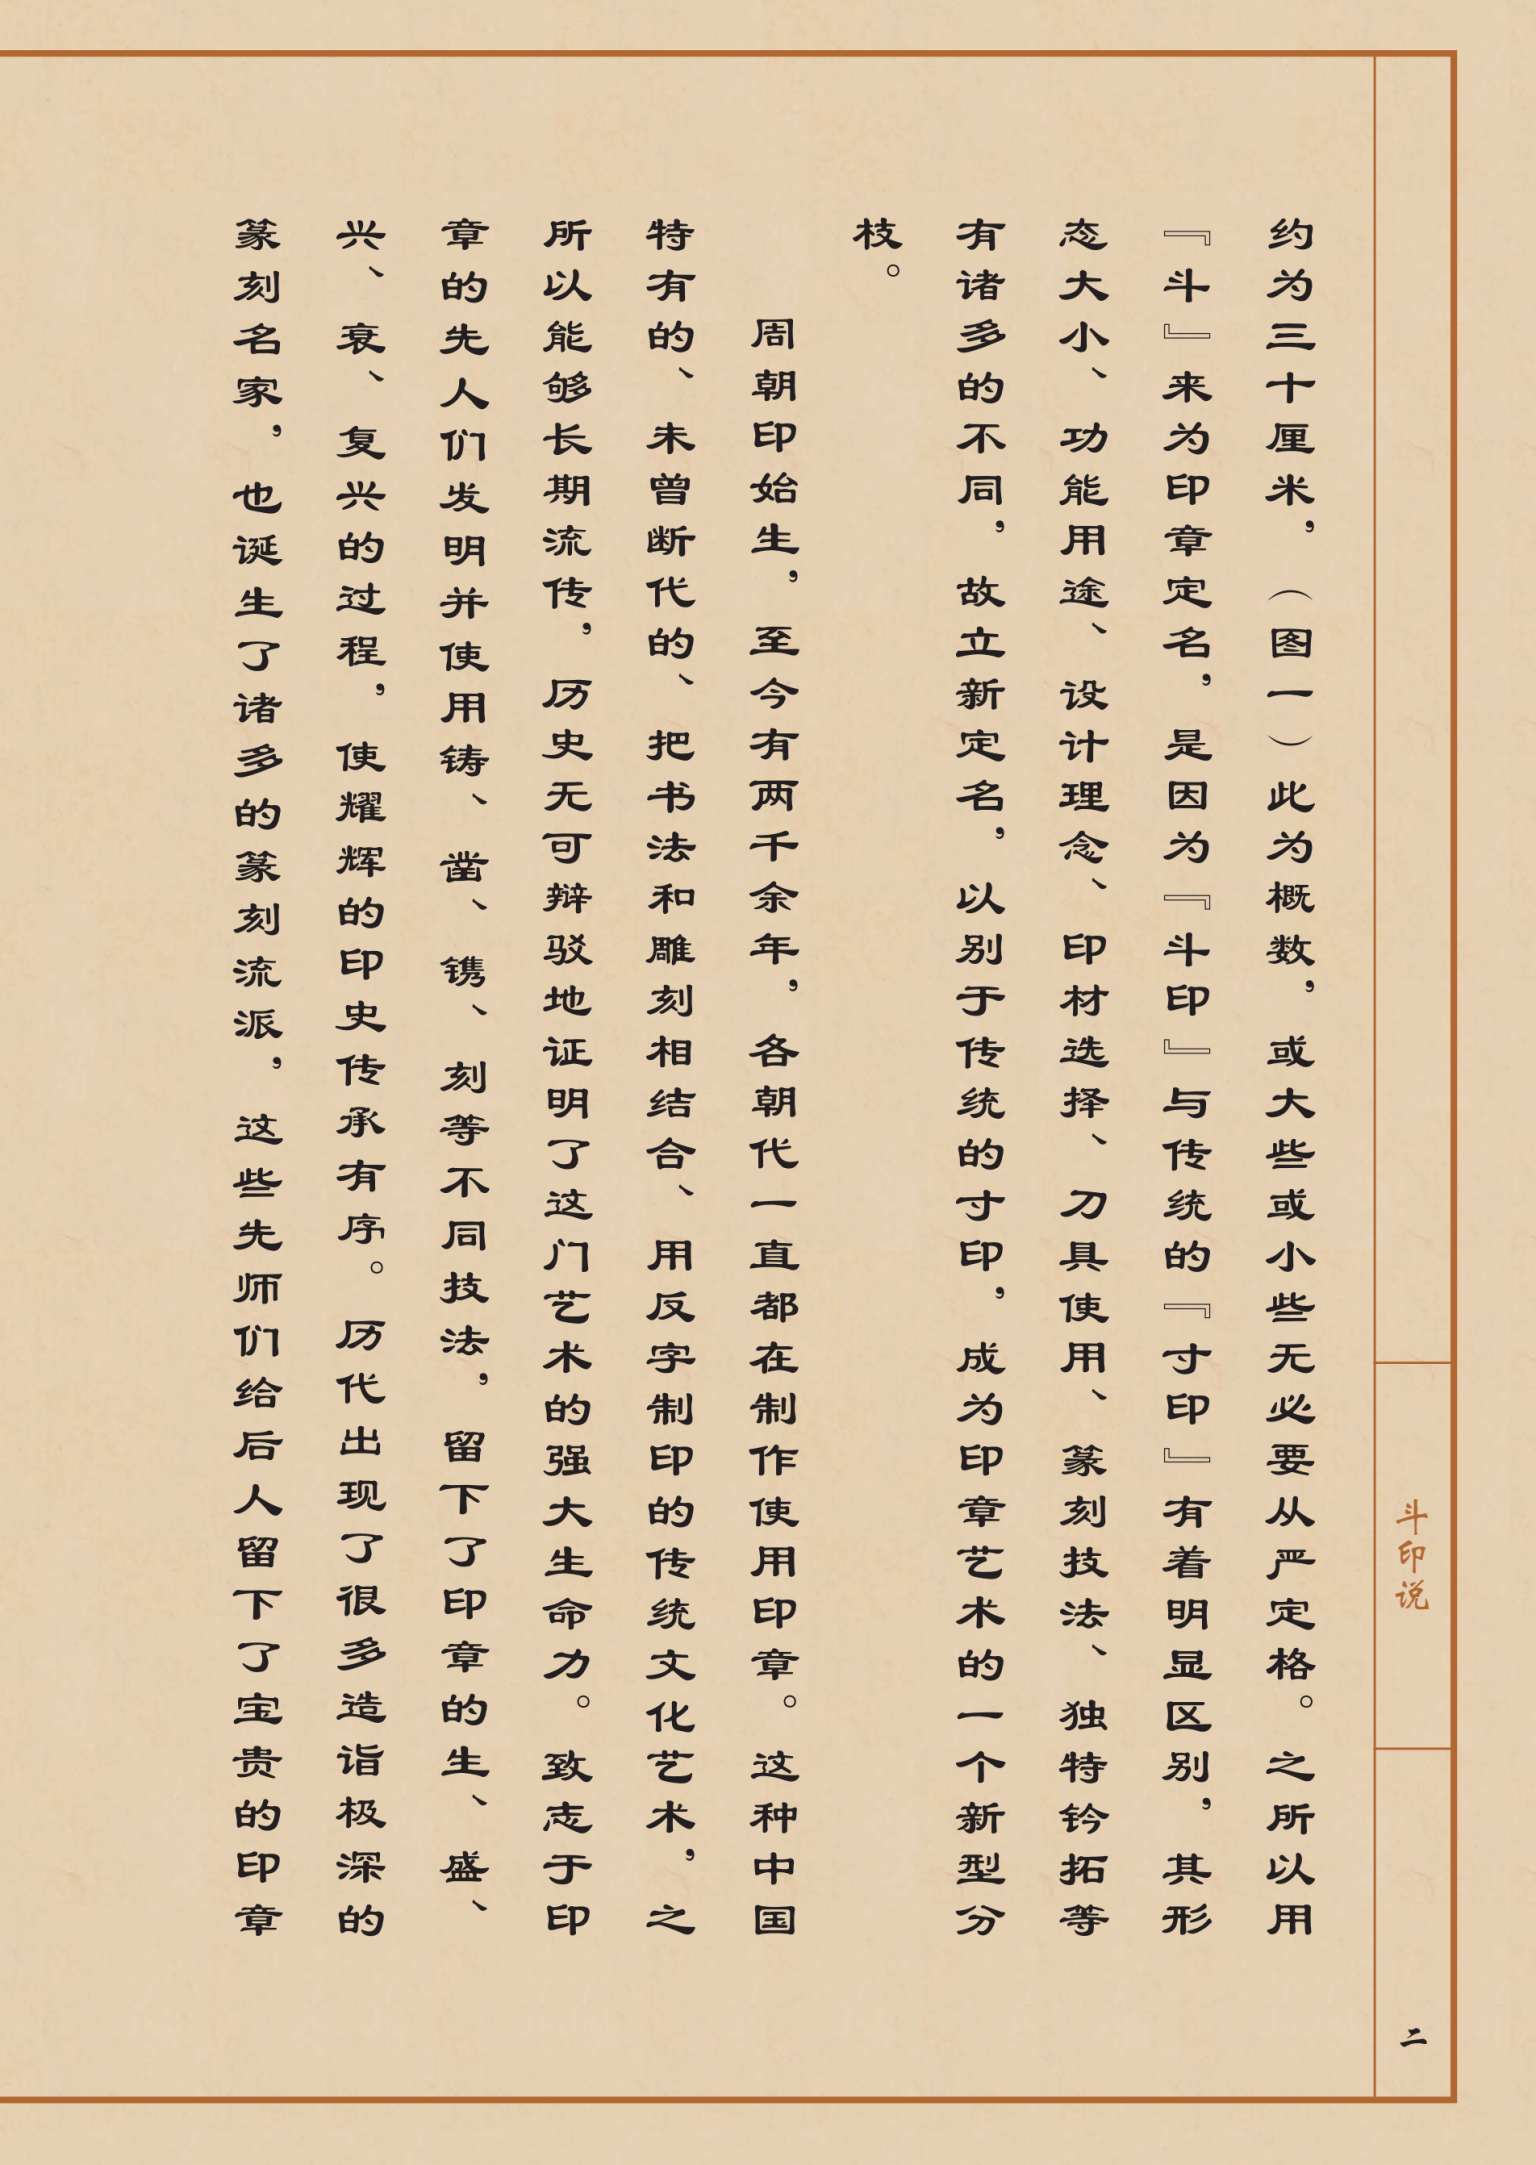 约为三十厘米，（图一）此为概数，或大些或小些无必要从严定格。之所以用
『斗』来为印章定名，是因为『斗印』与传统的『寸印』有着明显区别，其形
态大小、功能用途、设计理念、印材选择、刀具使用、篆刻技法、独特钤拓等
有诸多的不同，故立新定名，以别于传统的寸印，成为印章艺术的一个新型分
枝。
周朝印始生，至今有两千余年，各朝代一直都在制作使用印章。这种中国
特有的、未曾断代的、把书法和雕刻相结合、用反字制印的传统文化艺术，之
所以能够长期流传，历史无可辩驳地证明了这门艺术的强大生命力。致志于印
章的先人们发明并使用铸、凿、镌、刻等不同技法，留下了印章的生、盛、
兴、衰、复兴的过程，使耀辉的印史传承有序。历代出现了很多造诣极深的
篆刻名家，也诞生了诸多的篆刻流派，这些先师们给后人留下了宝贵的印章
斗印说
二